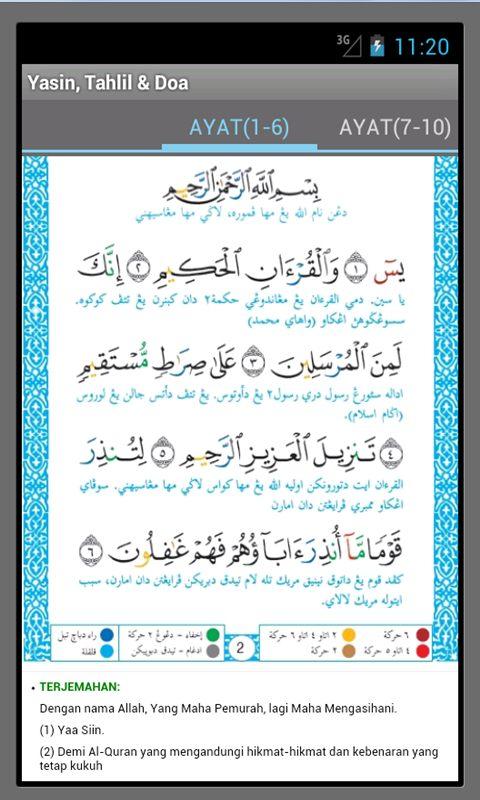 3G 11:20
Yasin, Tahlil & Doa
AYAT(1-6) AYAT(7-10)
بِسْمِ اللَّهِ الرَّحْمَٰنِ الرَّحِيمِ
دڠن نام الله يڠ مها ڤموره، لاݢي مها مڠاسيهني
يسٓ ۝١ وَالْقُرْءَانِ الْحَكِيمِ ۝٢ إِنَّكَ
يا سين. دمي القرءان يڠ مڠاندوڠي حكمة٢ دان كبنرن يڠ تتڤ كوكوه.
سسوڠݢوهن اڠكاو (واهاي محمد)
لَمِنَ الْمُرْسَلِينَ ۝٣ عَلَىٰ صِرَاطٍ مُّسْتَقِيمٍ
اداله سئورڠ رسول دري رسول٢ يڠ دأوتوس. يڠ تتڤ دأتس جالن يڠ لوروس
(اݢام اسلام).
۝٤ تَنزِيلَ الْعَزِيزِ الرَّحِيمِ ۝٥ لِتُنذِرَ
القرءان ايت دتورونكن اوليه الله يڠ مها كواس لاݢي مها مڠاسيهني. سوڤاي
اڠكاو ممبري ڤرايڠتن دان امارن
قَوْمًا مَّآ أُنذِرَ ءَابَآؤُهُمْ فَهُمْ غَٰفِلُونَ ۝٦
كڤد قوم يڠ داتوق نينيق مريك تله لام تيدق دبريكن ڤرايڠتن دان امارن، سبب
ايتوله مريك لالاي.
٦ حركة ٢ اتاو ٤ اتاو ٦ حركة إخفاء - دڠوڠ ٢ حركة راء دباچ تبل
٤ اتاو ٥ حركة ٢ حركة 2 ادغام - تيدق دبوييكن قلقلة
• TERJEMAHAN:
Dengan nama Allah, Yang Maha Pemurah, lagi Maha Mengasihani.
(1) Yaa Siin.
(2) Demi Al-Quran yang mengandungi hikmat-hikmat dan kebenaran yang
tetap kukuh